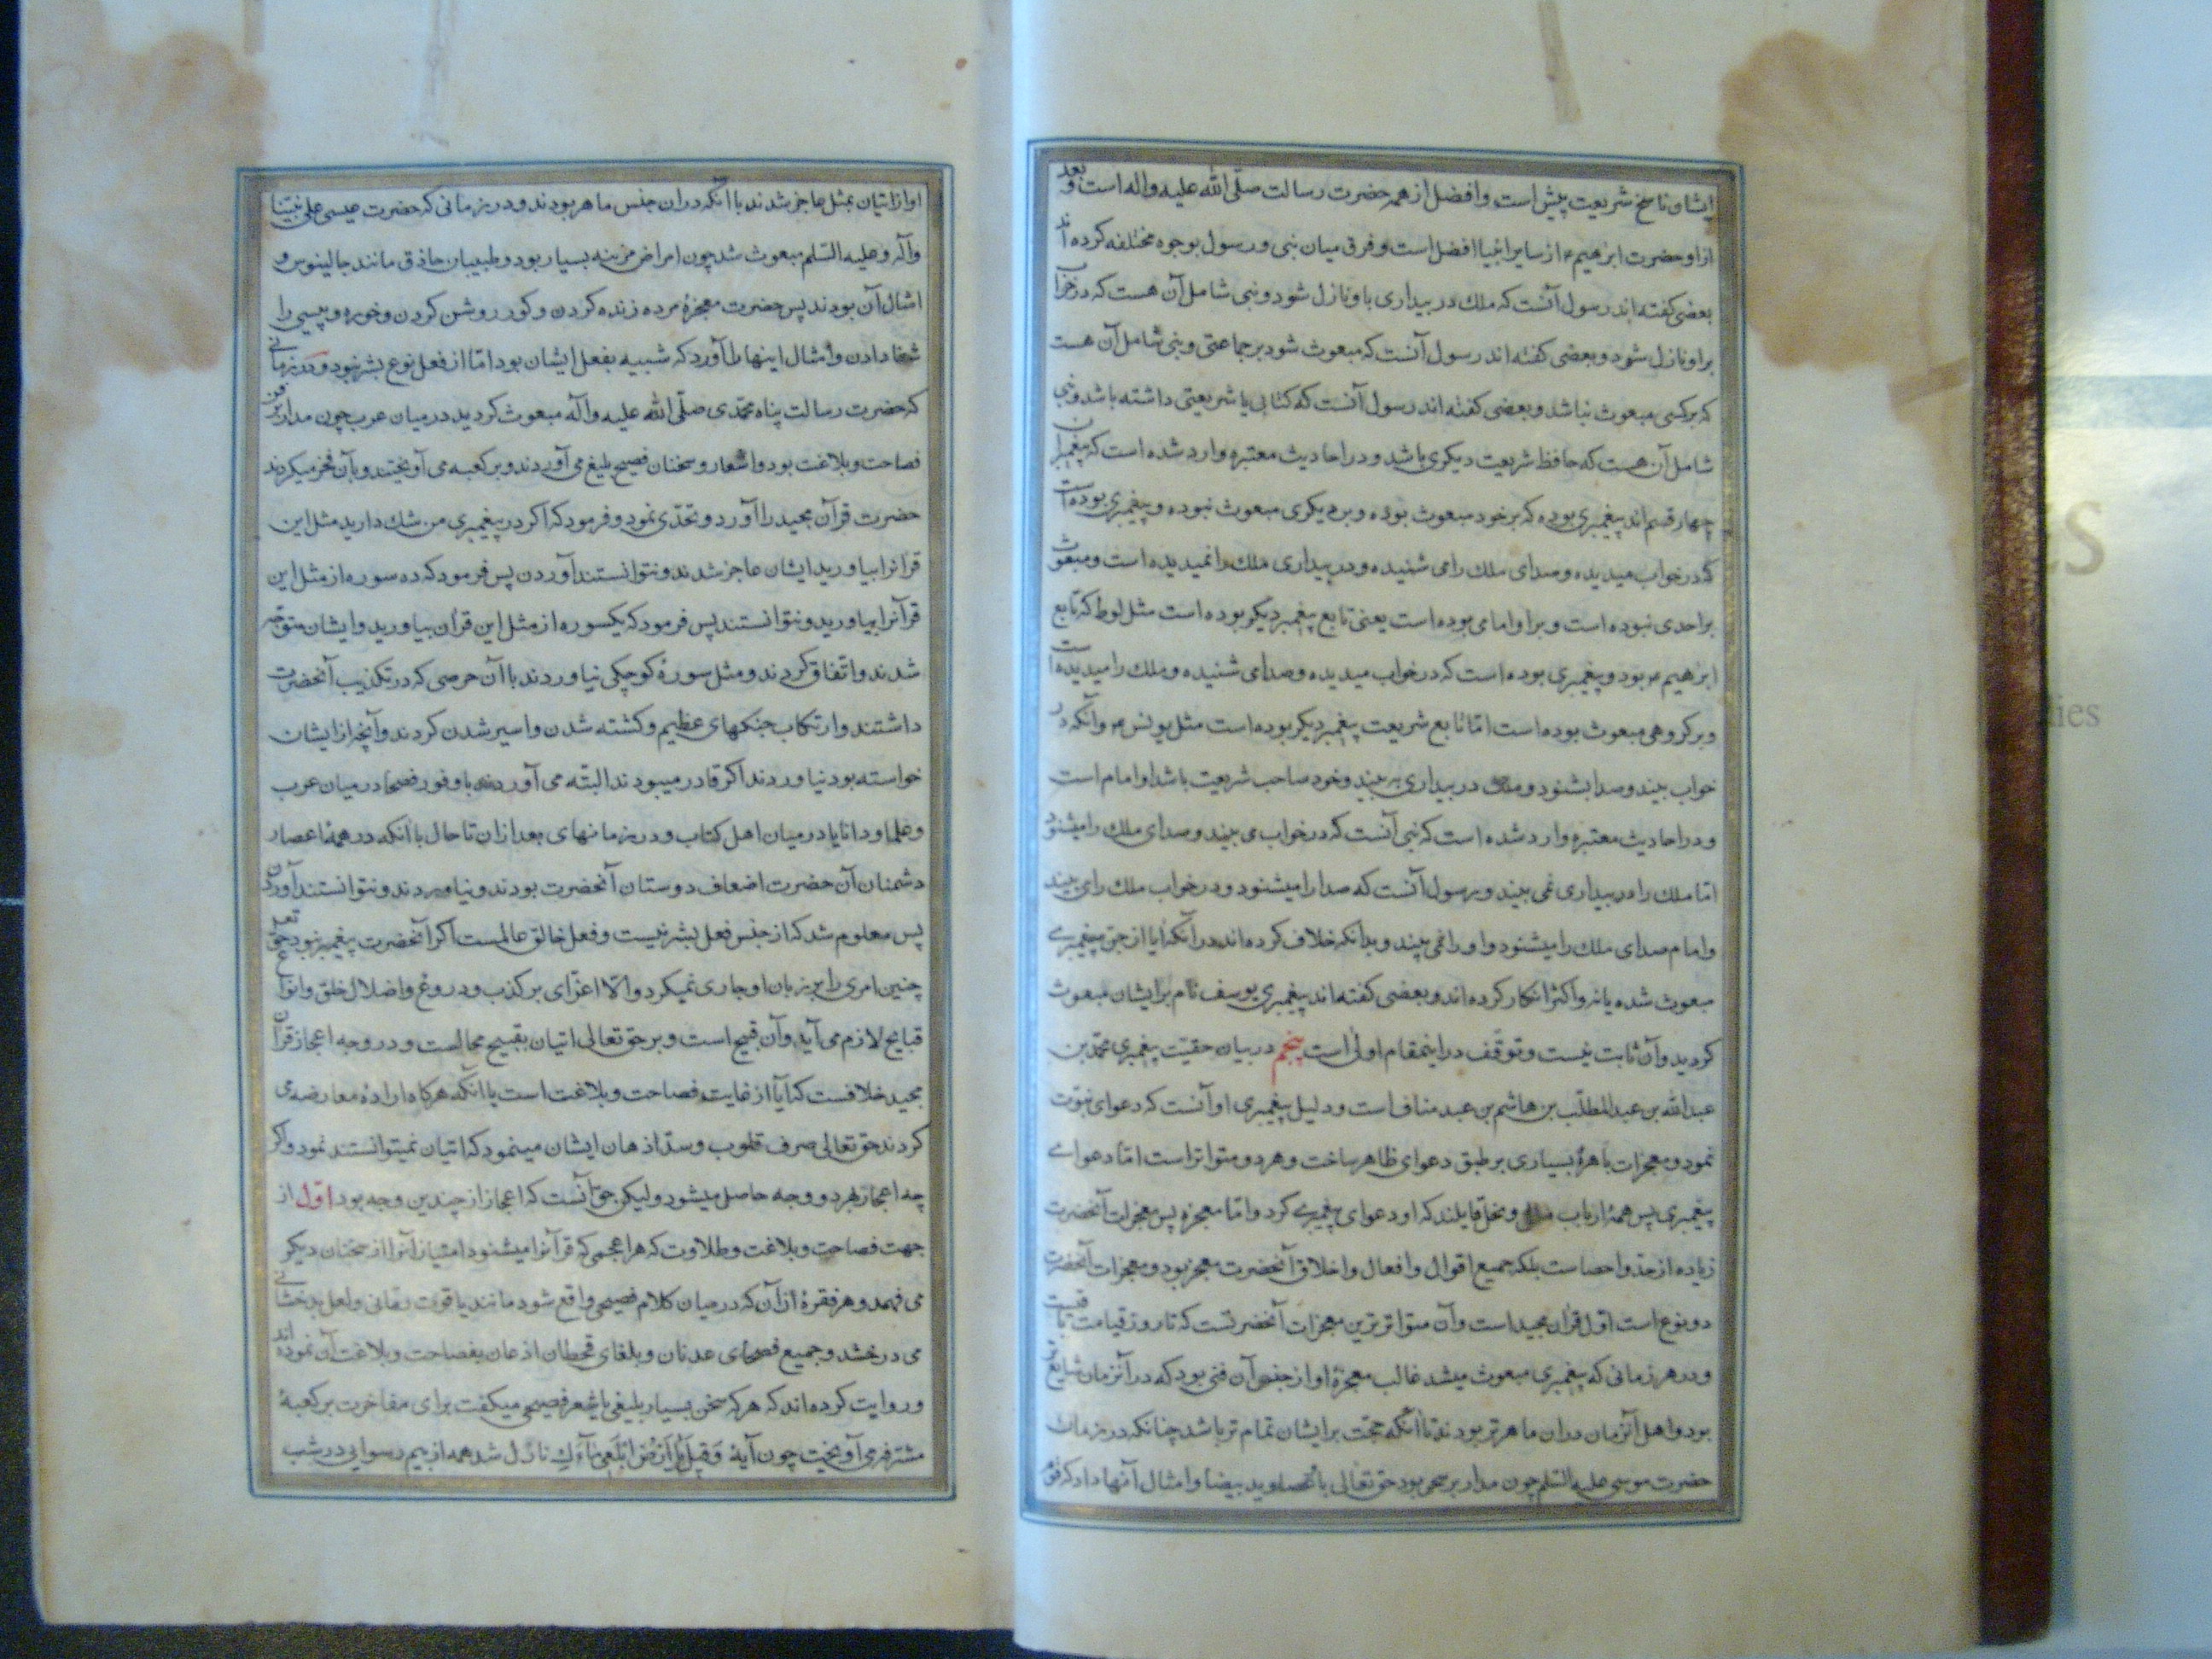 ایشان و ناسخ شریعت پیش است و افضل از همه حضرت رسالت صلّی الله علیه و اله است و بعد
از او حضرت ابرهیم ع از سایر انبیا افضل است و فرق میان نبی و رسول بوجوه مختلفه کرده اند
بعضی کفته اند رسول آنست که ملك در بیداری باو نازل شود و نبی شامل آن هست که در خواب
بر او نازل شود و بعضی کفته اند رسول آنست که مبعوث شود بر جماعتی و نبی شامل آن هست
که بر کسی مبعوث نباشد و بعضی کفته اند رسول آنست که کتابی یا شریعتی داشته باشد و نبی
شامل آن هست که حافظ شریعت دیکری باشد و در احادیث معتبره وارد شده است که پیغمبران
چهار قسم اند پیغمبری بوده که بر خود مبعوث بوده و بر دیکری مبعوث نبوده و پیغمبری بوده است
که در خواب میدیده و صدای ملك را می شنیده و در بیداری ملك را نمیدیده است و مبعوث
بر احدی نبوده است و بر او امامی بوده است یعنی تابع پیغمبر دیکر بوده است مثل لوط که تابع
ابرهیم ع بود و پیغمبری بوده است که در خواب میدیده و صدا می شنیده و ملك را میدیده است
و بر کروهی مبعوث بوده است امّا تابع شریعت پیغمبر دیکر بوده است مثل یونس ع و آنکه در
خواب بیند و صدا بشنود و ملك در بیداری به بیند و خود صاحب شریعت باشد او امام است
و در احادیث معتبره وارد شده است که نبی آنست که در خواب می بیند و صدای ملك را میشنود
امّا ملك را در بیداری نمی بیند و رسول آنست که صدا را میشنود و در خواب ملك را می بیند
و امام صدای ملك را میشنود و او را نمی بیند و بدانکه خلاف کرده اند در آنکه آیا از جن پیغمبری
مبعوث شده یا نه و اکثر انکار کرده اند و بعضی کفته اند پیغمبری یوسف نام بر ایشان مبعوث
کردید و آن ثابت نیست و توقّف در اینمقام اولی است پنجم در بیان حقیّت پیغمبری محمّد بن
عبدالله بن عبدالمطلّب بن هاشم بن عبد مناف است و دلیل پیغمبری او آنست که دعوای نبوّت
نمود و معجزات باهرهٔ بسیاری بر طبق دعوای ظاهر ساخت و هر دو متواتر است امّا دعوای
پیغمبری پس همهٔ ارباب ملل و نحل قایلند که او دعوای پیغمبری کرد و امّا معجزه پس معجزات آنحضرت
زیاده از حدّ و احصاست بلکه جمیع اقوال و افعال و اخلاق آنحضرت معجز بود و معجزات آنحضرت
دو نوع است اوّل قرآن مجید است و آن متواترترین معجزات آنحضرتست که تا روز قیامت باقیست
و در هر زمانی که پیغمبری مبعوث میشد غالب معجزهٔ او از جنس آن فنی بود که در آنزمان شایعتر
بود و اهل آنزمان در ان ماهرتر بودند تا آنکه حجّت بر ایشان تمام تر باشد چنانکه در زمان
حضرت موسی علیه السّلم چون مدار بر سحر بود حق تعالی باو عصا و ید بیضا و امثال آنها داد که قوم
او از اتیان بمثل عاجز شدند با آنکه در ان جنس ماهر بودند و در زمانی که حضرت عیسی علی نبیّنا
و آله و علیه السّلم مبعوث شد چون امراض مزمنه بسیار بود و طبیبان حاذق مانند جالینوس و
امثال آن بودند پس حضرت معجزهٔ مرده زنده کردن و کور روشن کردن و خوره و پیسی را
شفا دادن و امثال اینها را آورد که شبیه بفعل ایشان بود امّا از فعل نوع بشر نبود و در زمانی
که حضرت رسالت پناه محمّدی صلّی الله علیه و آله مبعوث کردید در میان عرب چون مدار بر فن
فصاحت و بلاغت بود و اشعار و سخنان فصیح بلیغ می آوردند و بر کعبه می آویختند و بآن فخر میکردند
حضرت قرآن مجید را آورد و تحدّی نمود و فرمود که اکر در پیغمبری من شك دارید مثل این
قرآنرا بیاورید ایشان عاجز شدند و نتوانستند آوردن پس فرمود که ده سوره از مثل این
قرآنرا بیاورید و نتوانستند پس فرمود که یکسوره از مثل این قرآن بیاورید و ایشان متوجّه
شدند و اتّفاق کردند و مثل سورهٔ کوچکی نیاوردند با آن حرصی که در تکذیب آنحضرت
داشتند و ارتکاب جنکهای عظیم و کشته شدن و اسیر شدن کردند و آنچه از ایشان
خواسته بود نیاوردند اکر قادر میبودند البتّه می آوردند با وفور فصحا در میان عرب
و علما و دانایا در میان اهل کتاب و در زمانهای بعد از ان تا حال با آنکه در همهٔ اعصار
دشمنان آن حضرت اضعاف دوستان آنحضرت بودند و نیاوردند و نتوانستند آوردن
پس معلوم شد که از جنس فعل بشر نیست و فعل خالق عالمست اکر آنحضرت پیغمبر نبود حق تعالی
چنین امری را بر زبان او جاری نمیکرد و الّا اغرای بر کذب و دروغ و اضلال خلق و انواع
قبایح لازم می آید و آن قبیح است و بر حق تعالی اتیان بقبیح محالست و در وجه اعجاز قرآن
مجید خلافست که آیا از غایت فصاحت و بلاغت است یا آنکه هرکاه ارادهٔ معارضه می
کردند حق تعالی صرف قلوب و سدّ اذهان ایشان مینمود که اتیان نمیتوانستند نمود و اکر
چه اعجاز بهر دو وجه حاصل میشود و لیکن حق آنست که اعجاز از چندین وجه بود اوّل از
جهت فصاحت و بلاغت و طلاوت که هر اعجمی که قرآنرا میشنود امتیاز آنرا از سخنان دیکر
می فهمد و هر فقرهٔ از آن که در میان کلام فصیحی واقع شود مانند یاقوت رمّانی و لعل بدخشانی
می درخشد و جمیع فصحای عدنان و بلغای قحطان اذعان بفصاحت و بلاغت آن نموده اند
و روایت کرده اند که هر که سخن بسیار بلیغی یا شعر فصیحی میکفت برای مفاخرت بر کعبهٔ
مشرّفه می آویخت چون آیهٔ وَقِيلَ يَا أَرْضُ ابْلَعِي مَاءَكِ نازل شد همه از بیم رسوایی در شب